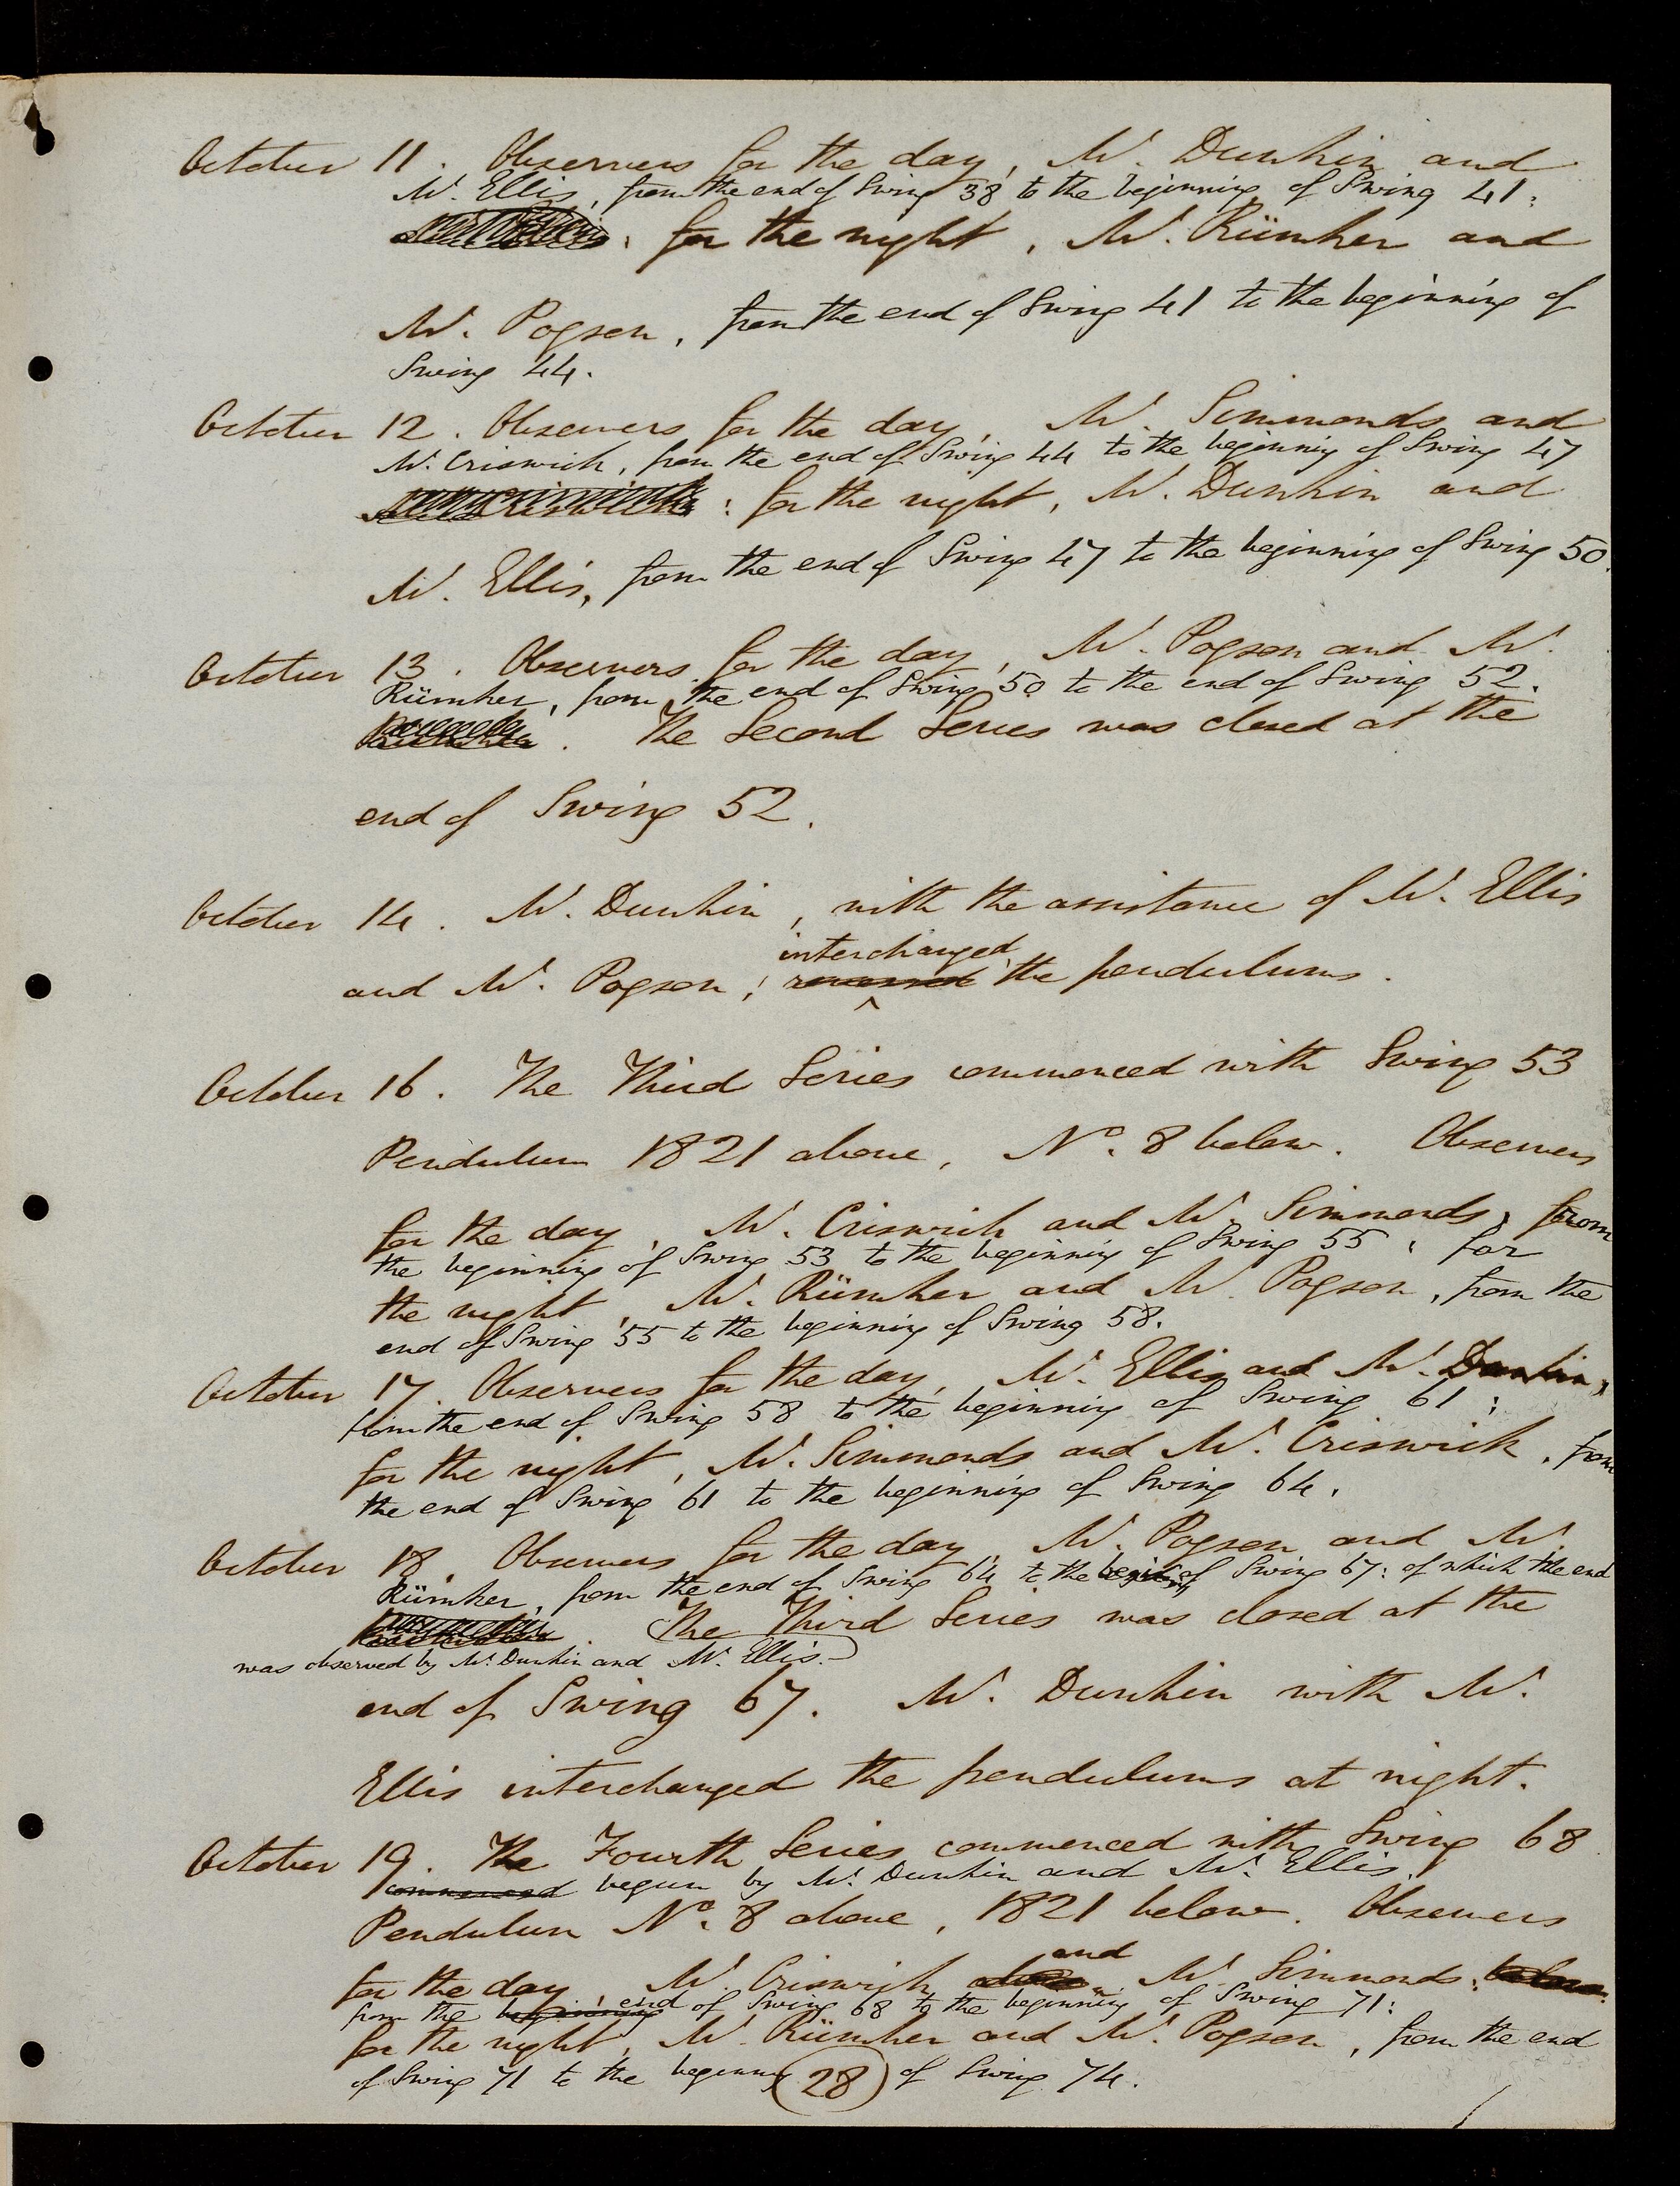 October 11. Observers for the day, Mr. Dunkin and
Mr. Ellis, from the end of Swing 38 to the beginning of Swing 41:
: for the night, Mr. Rümker and
Mr. Pogson, from the end of Swing 41 to the beginning of
Swing 44.
October 12. Observers for the day, Mr. Simmonds and
Mr. Criswick, from the end of Swing 44 to the beginning of Swing 47
: for the night, Mr. Dunkin and
Mr. Ellis, from the end of Swing 47 to the beginning of Swing 50.
October 13. Observers for the day, Mr. Pogson and Mr.
Rümker, from the end of Swing 50 to the end of Swing 52.
. The Second Series was closed at the
end of Swing 52.
October 14. Mr. Dunkin, with the assistance of Mr. Ellis
interchanged
and Mr. Pogson, reversed the pendulums.
October 16. The Third Series commenced with Swing 53
Pendulum 1821 above, No. 8 below. Observers
for the day, Mr. Criswick and Mr. Simmonds, from
the beginning of Swing 53 to the beginning of Swing 55: for
the night, Mr. Rümker and Mr. Pogson, from the
end of Swing 55 to the beginning of Swing 58.
October 17. Observers for the day, Mr. Ellis and Mr. Dunkin,
from the end of Swing 58 to the beginning of Swing 61:
for the night, Mr. Simmonds and Mr. Criswick, from
the end of Swing 61 to the beginning of Swing 64.
October 18. Observers for the day, Mr. Pogson and Mr.
Rümker, from the end of Swing 64 to the begin.g of Swing 67: of which the end
. The Third Series was closed at the
was observed by Mr. Dunkin and Mr. Ellis.
end of Swing 67. Mr. Dunkin with Mr.
Ellis interchanged the pendulums at night.
October 19. The Fourth Series commenced with Swing 68
commenced begun by Mr. Dunkin and Mr. Ellis.
Pendulum No. 8 above, 1821 below. Observers
and
for the day, Mr. Criswick Mr. Simmonds:
from the beginning end of Swing 68 to the beginning of Swing 71:
for the night, Mr. Rümker and Mr. Pogson, from the end
of Swing 71 to the beginning of Swing 74.
28